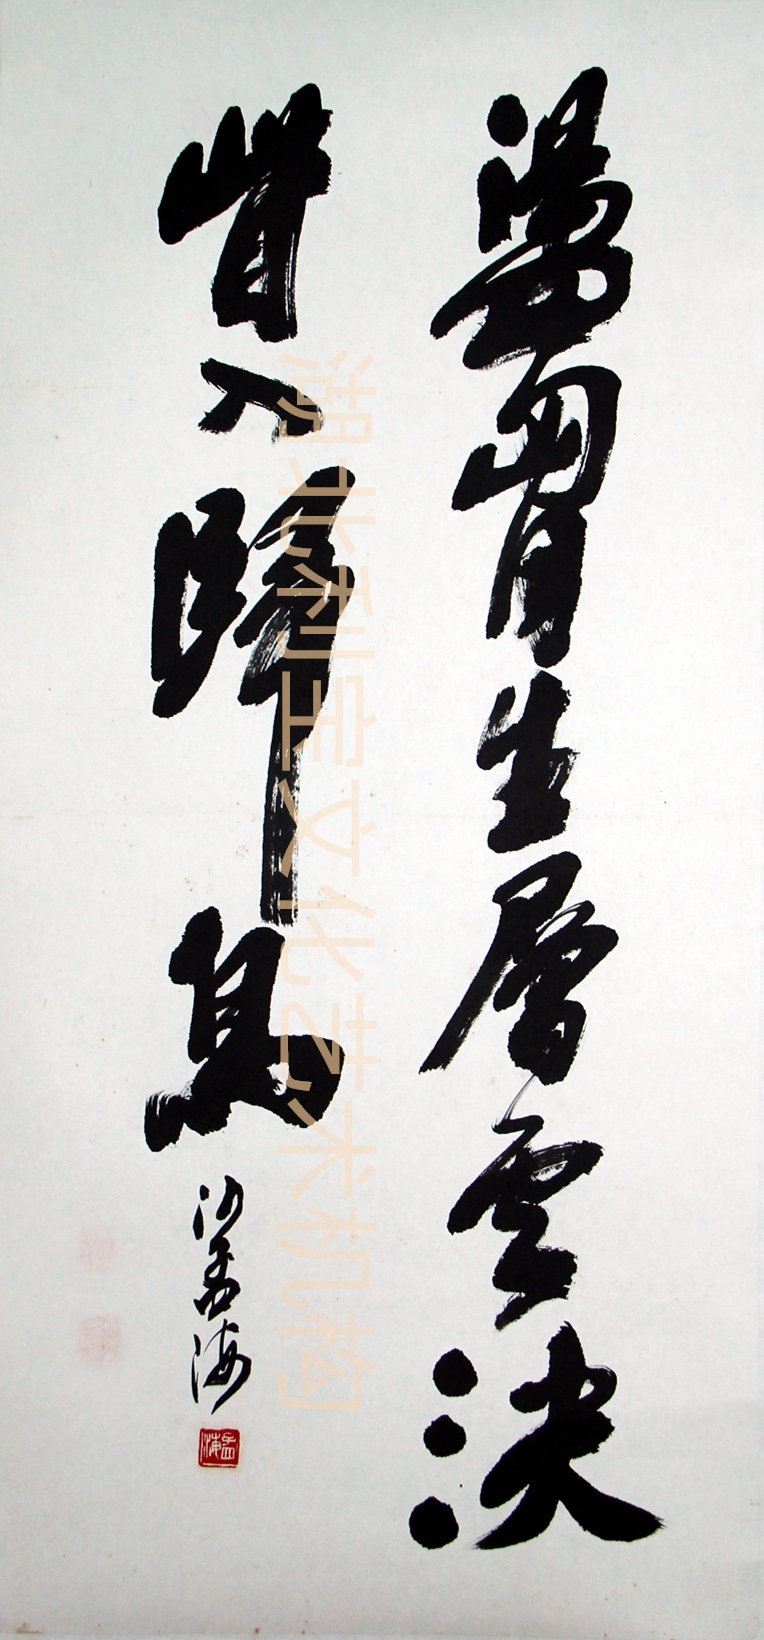 盪胷生層雲決
眥入歸鳥
沙孟海
孟海
湖北利宝文化艺术机构